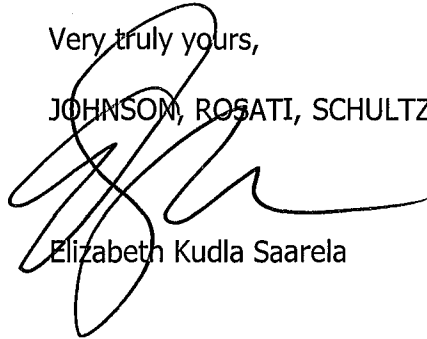 Very truly yours,
JOHNSON, ROSATI, SCHULTZ
Elizabeth Kudla Saarela